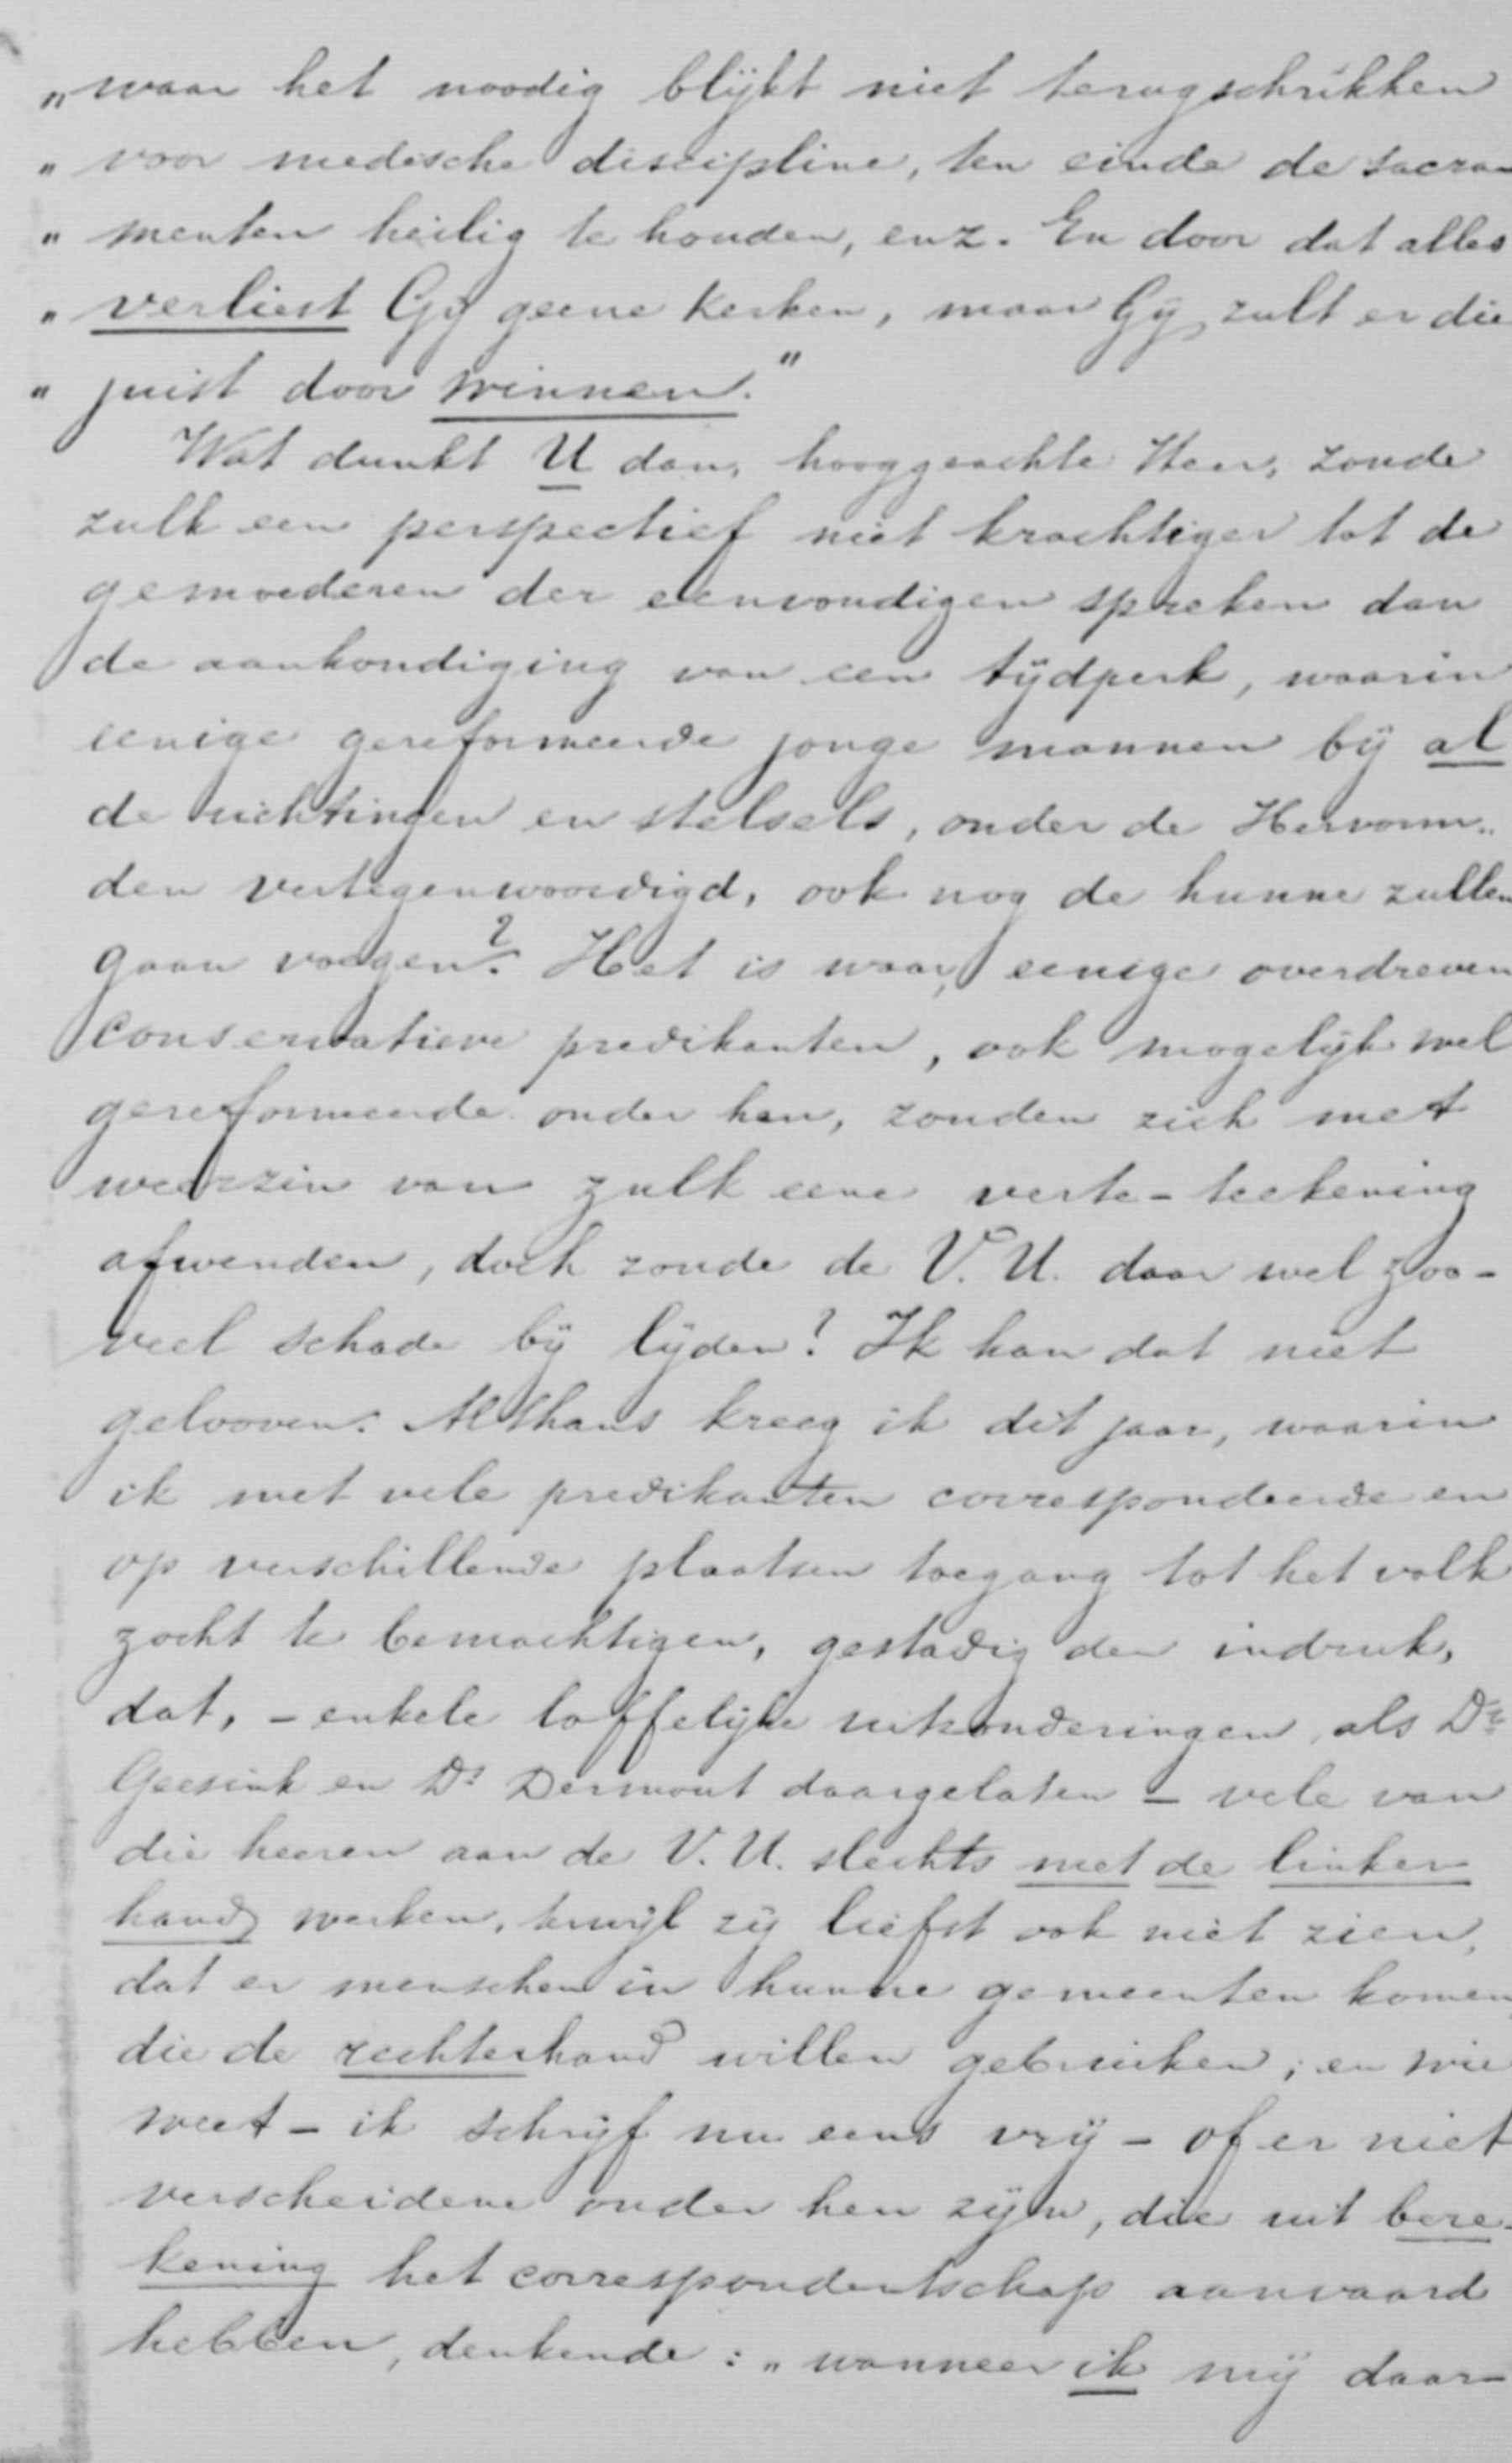 „waar het noodig blijkt niet terugschrikken
„ voor medische discipline, ten einde de sacra-
„ menten heilig te houden, enz. En door dat alles
„ verliest Gij geene kerken, maar Gij zult er die
„ juist door winnen."
Wat dunkt U dan, hooggeachte Heer, zoude
zulk een perspectief niet krachtiger tot de
gemoederen der eenvoudigen spreken dan
de aankondiging van een tijdperk, waarin
eenige gereformeerde jonge mannen bij al
de richtingen en stelsels, onder de Hervorm-
den vertegenwoordigd, ook nog de hunne zullen
gaan voegen? Het is waar, eenige overdreven
conservatieve predikanten, ook mogelijk wel
gereformeerde onder hen, zouden zich met
weerzin van zulk eene verte-teekening
afwenden, doch zoude de V. U. daar wel zoo-
veel schade bij lijden? Ik kan dat niet
gelooven. Althans kreeg ik dit jaar, waarin
ik met vele predikanten correspondeerde en
op verschillende plaatsen toegang tot het volk
zocht te bemachtigen, gestadig den indruk,
dat, - enkele loffelijke uitzonderingen, als Ds
Geesink en Ds Dermout daargelaten - vele van
die heeren aan de V. U. slechts met de linker
hand werken, terwijl zij liefst ook niet zien,
dat er menschen in hunne gemeenten komen
die de rechterhand willen gebruiken; en wie
weet - ik schrijf nu eens vrij - of er niet
verscheidene onder hen zijn, die uit bere-
kening het correspondentschap aanvaard
hebben, denkende: „wanneer ik mij daar-